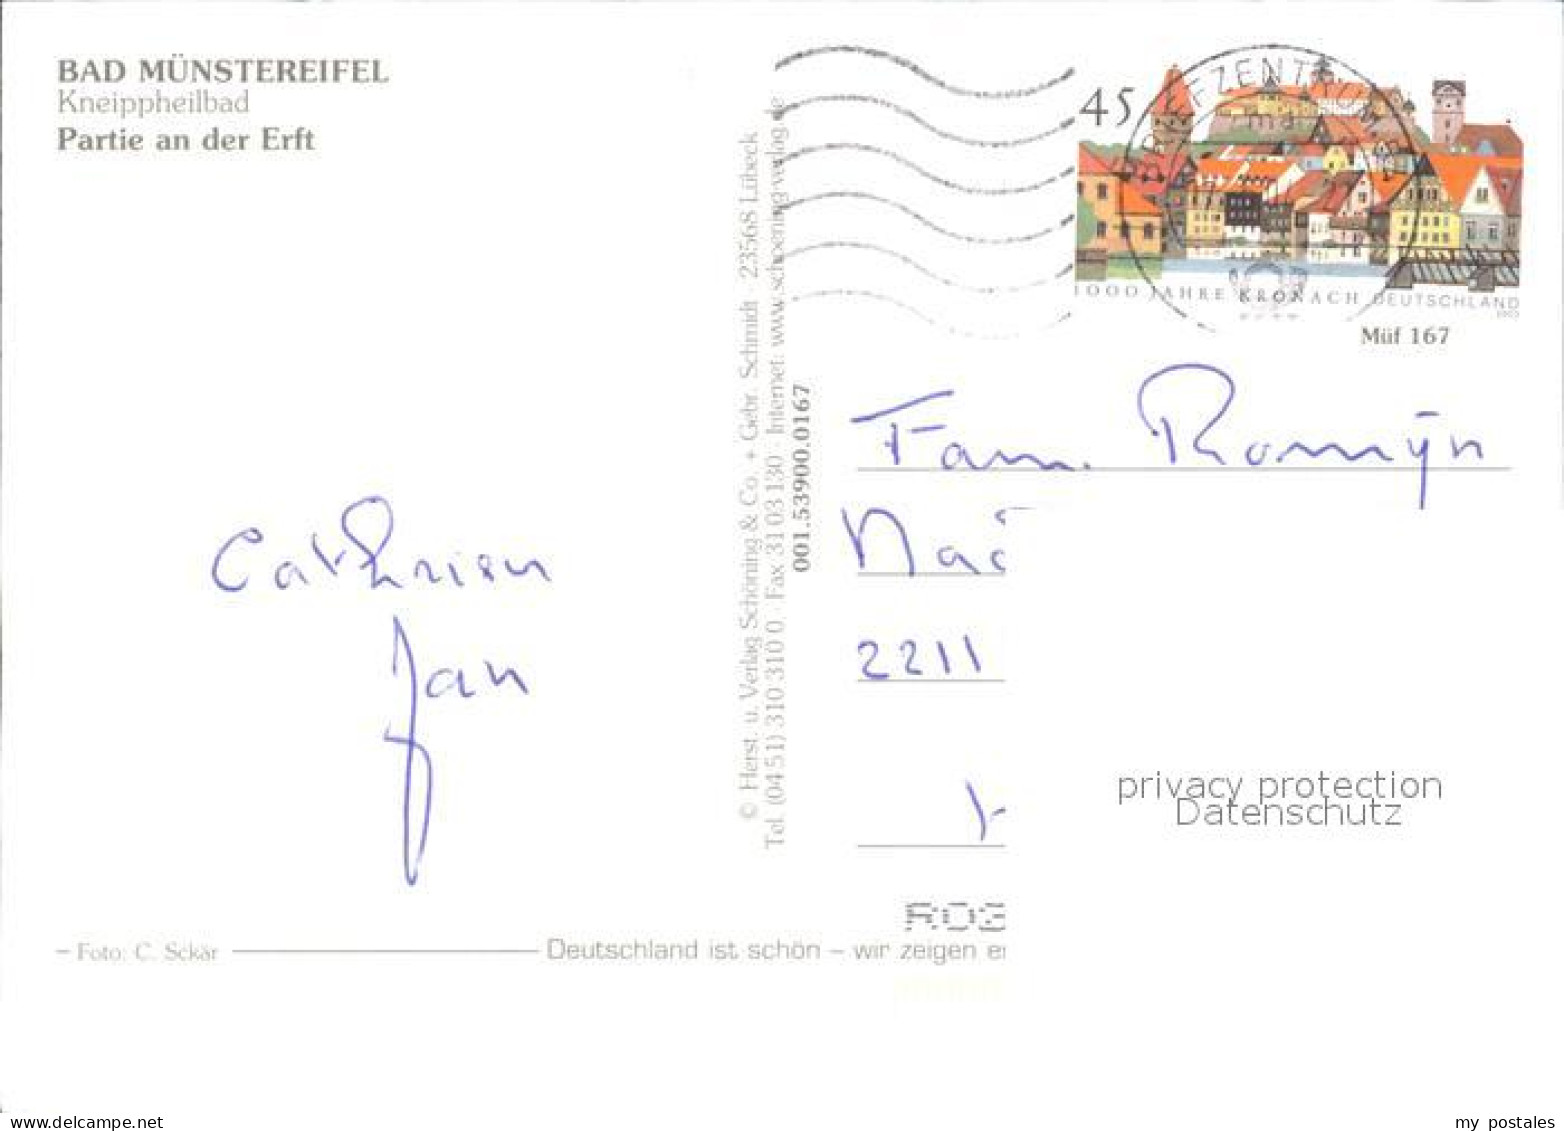 BAD MÜNSTEREIFEL
Kneippheilbad
Partie an der Erft
Cathrien
Jan
– Foto: C. Sckär
Deutschland ist schön – wir zeigen
© Herst. u. Verlag Schöning & Co. + Gebr. Schmidt · 23568 Lübeck
Tel. (04 51) 310 310 0 · Fax 31 03 130 · Internet: www.schoening-verlag.de
001.53900.0167
45
BRIEFZENTRUM
1000 JAHRE KRONACH DEUTSCHLAND
Müf 167
Fam. Romijn
2211
privacy protection
Datenschutz
www.delcampe.net
my postales